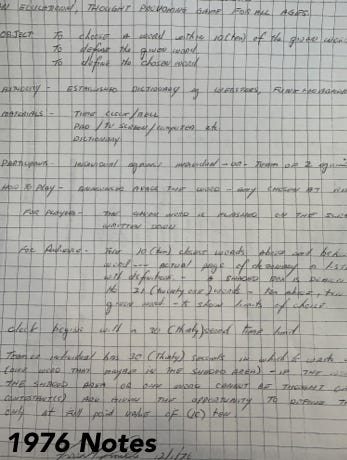 AN EDUCATIONAL, THOUGHT PROVOKING GAME FOR ALL AGES.
OBJECT To choose a word within 10 (ten) of the given word
To define the given word
To define the chosen word
AUTHORITY - ESTABLISHED DICTIONARY eg WEBSTERS, FUNK
MATERIALS - TIME CLOCK / BELL
PAD / TV SCREEN / COMPUTER etc.
DICTIONARY
PARTICIPANTS - INDIVIDUAL against individual - OR - TEAM OF 2 again
HOW TO PLAY - ANNOUNCER READS THE WORD - any CHOSEN AT
FOR PLAYERS - THE GIVEN WORD IS FLASHED ON THE
WRITTEN DOWN
FOR AUDIENCE - The 10 (ten) choice words, above and
word --- actual page of dictionary or
with definitions - A SHADED BOX is
the 21 (twenty one) words - ten above, ten
given word - to show limits of choice
Clock begins with a 30 (thirty) second time limit
Team or individual has 30 (thirty) seconds in which to write
(ONE WORD THAT IS THE SHADED AREA) - IF THE
THE SHADED AREA OR ONE WORD CANNOT BE THOUGHT
CONTESTANT(S) ARE GIVEN THE OPPORTUNITY TO DEFINE
only at full point value of (10) ten.
1976 Notes
12/1/76